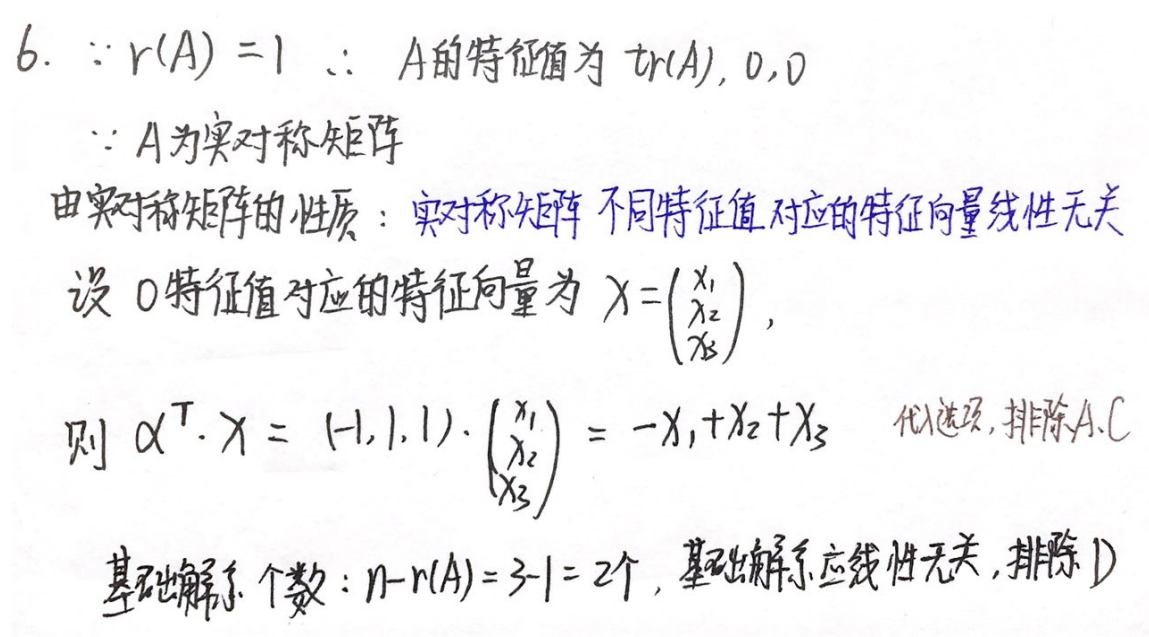 6. ∵ r(A) = 1 ∴ A的特征值为 tr(A), 0, 0
∵ A为实对称矩阵
由实对称矩阵的性质: 实对称矩阵 不同特征值对应的特征向量线性无关
设 0特征值对应的特征向量为 X = (x₁ x₂ x₃),
则 αᵀ·X = (-1, 1, 1)·(x₁ x₂ x₃) = -x₁+x₂+x₃ 代入选项, 排除A、C
基础解系个数: n-r(A) = 3-1 = 2个, 基础解系应线性无关, 排除D